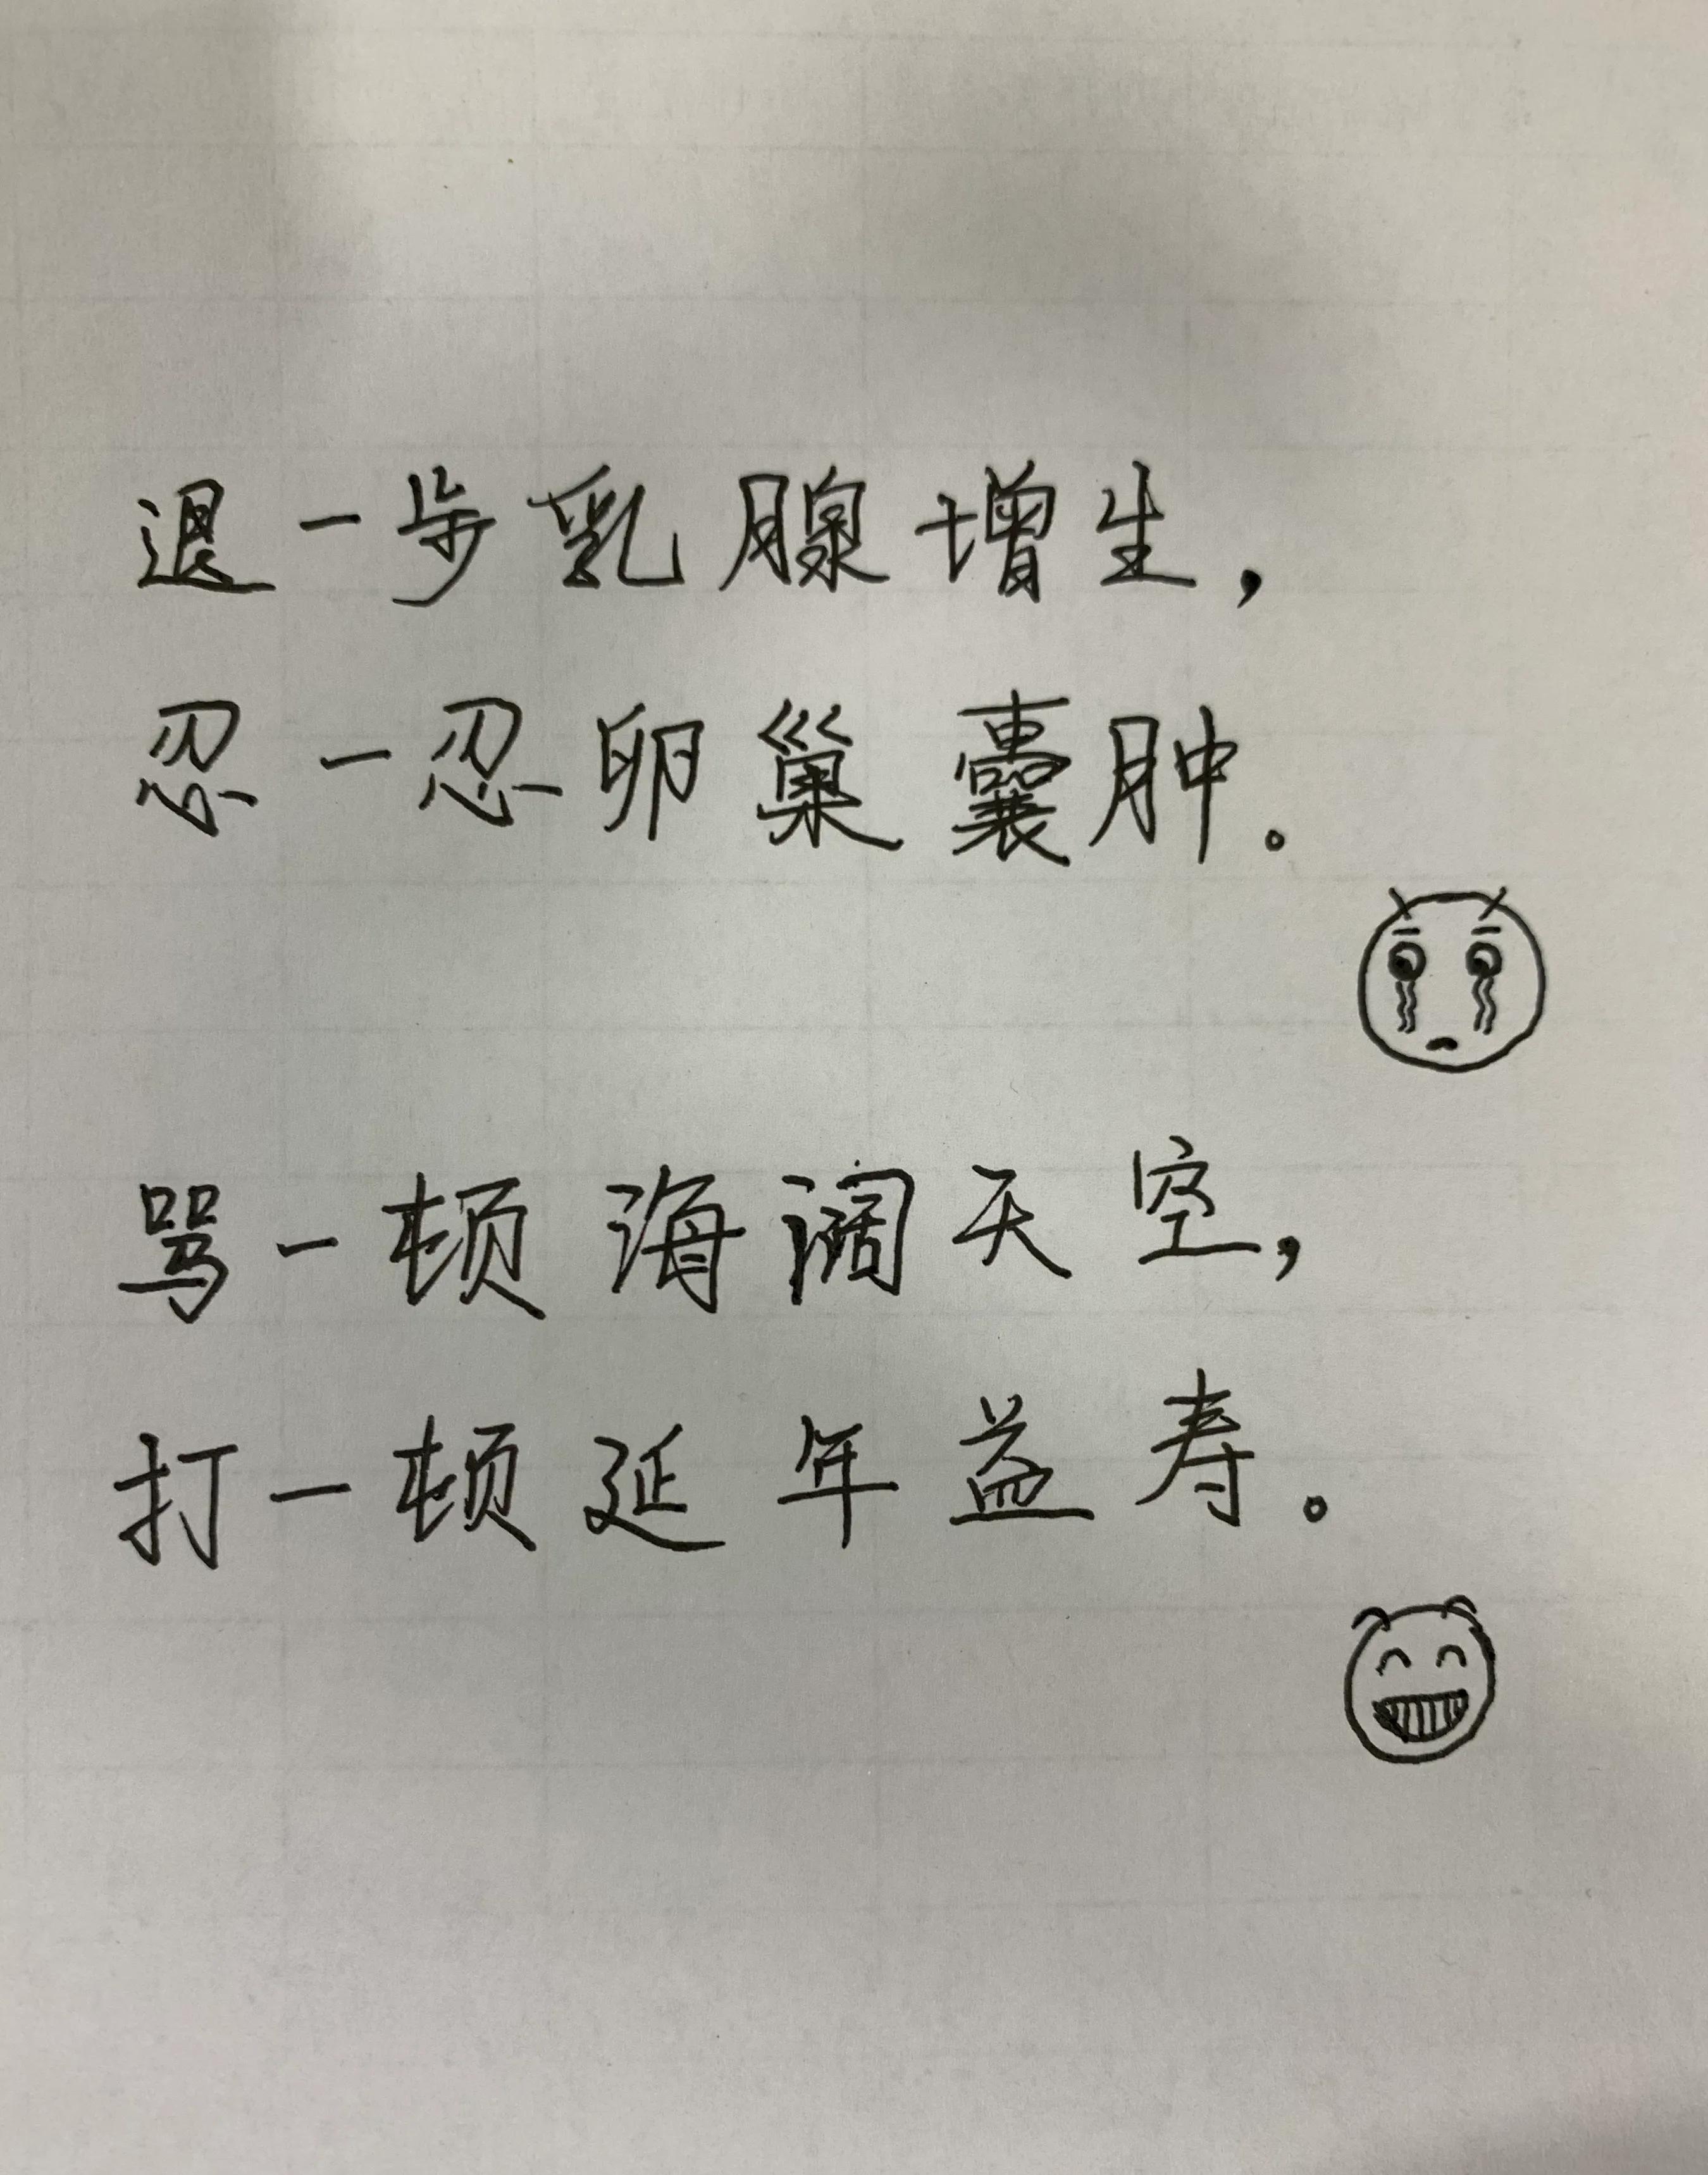 退一步乳腺增生，
忍一忍卵巢囊肿。
骂一顿海阔天空，
打一顿延年益寿。